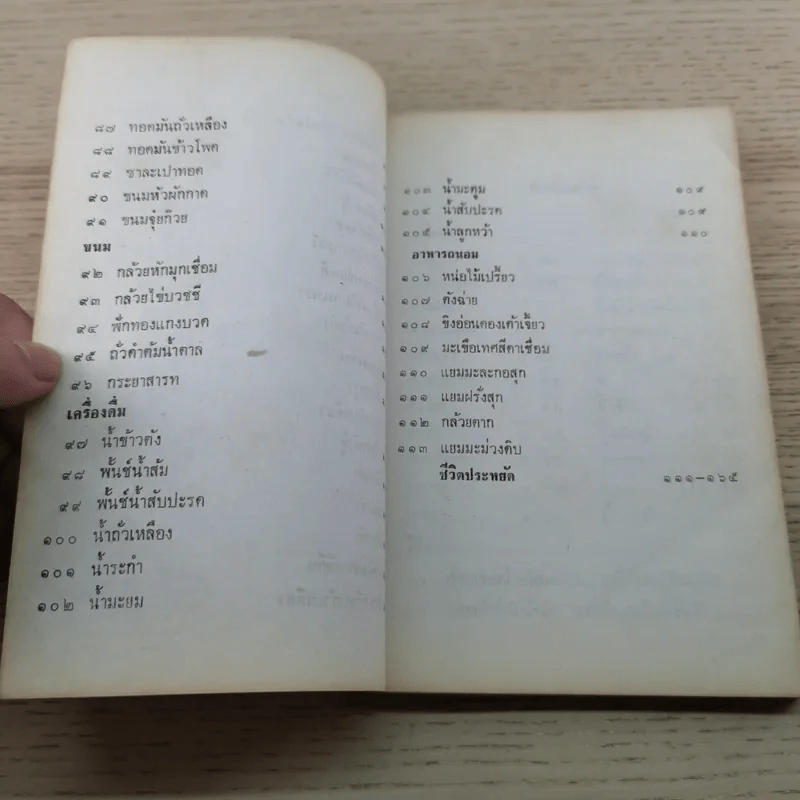 ๘๗ ทอดมันถั่วเหลือง
๘๘ ทอดมันข้าวโพด
๘๙ ซาละเปาทอด
๙๐ ขนมหัวผักกาด
๙๑ ขนมจุ๋ยก๊วย
ขนม
๙๒ กล้วยหักมุกเชื่อม
๙๓ กล้วยไข่บวชชี
๙๔ ฟักทองแกงบวด
๙๕ ถั่วดำต้มน้ำตาล
๙๖ กระยาสารท
เครื่องดื่ม
๙๗ น้ำข้าวตัง
๙๘ พั้นช์น้ำส้ม
๙๙ พั้นช์น้ำสับปะรด
๑๐๐ น้ำถั่วเหลือง
๑๐๑ น้ำระกำ
๑๐๒ น้ำมะยม
๑๐๓ น้ำมะตูม ๑๐๙
๑๐๔ น้ำสับปะรด ๑๐๙
๑๐๕ น้ำลูกหว้า ๑๑๐
อาหารถนอม
๑๐๖ หน่อไม้เปรี้ยว
๑๐๗ ตังฉ่าย
๑๐๘ ขิงอ่อนดองเต้าเจี้ยว
๑๐๙ มะเขือเทศสีดาเชื่อม
๑๑๐ แยมมะละกอสุก
๑๑๑ แยมฝรั่งสุก
๑๑๒ กล้วยตาก
๑๑๓ แยมมะม่วงดิบ
ชีวิตประหยัด ๑๑๑–๑๖๕